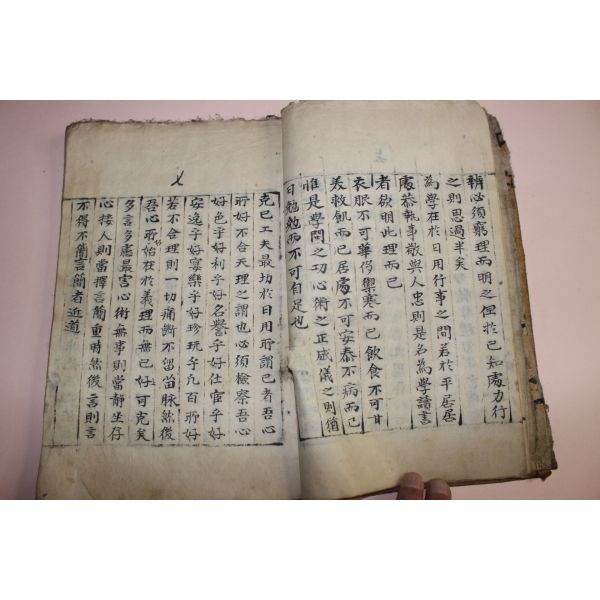 辨必須窮理而明之但於已知處力行
之則思過半矣
為學在於日用行事之間若於平居居
處恭執事敬與人忠則是名為學讀書
者欲明此理而已
衣服不可華侈禦寒而已飲食不可甘
美救飢而已居處不可安泰不病而已
惟是學問之功心術之正威儀之則猶
日勉勉而不可自足也
七
克己工夫最功於日用所謂己者吾心
所好不合天理之謂也必須檢察吾心
好色乎好利乎好名譽乎好仕宦乎好
安逸乎好宴樂乎好珍玩乎凡百所好
若不合理則一切痛斷不留苗脉然後
吾心所好始在於義理而無己好可克矣
多言多慮最害心術無事則當靜坐存
心接人則當擇言簡重時然後言則言
不得不簡言簡者近道